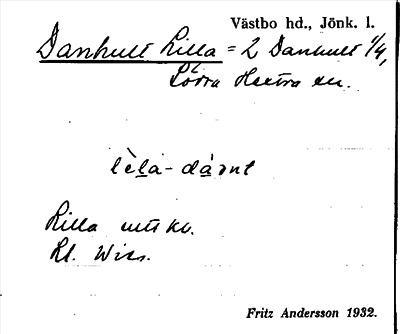 Västbo hd., Jönk. l.
Danhult Lilla = 2 Danhult 1/4,
Södra Hestra sn.
lìla - dánt
Lilla utt kv.
Kl. Wiss.
Fritz Andersson 1932.